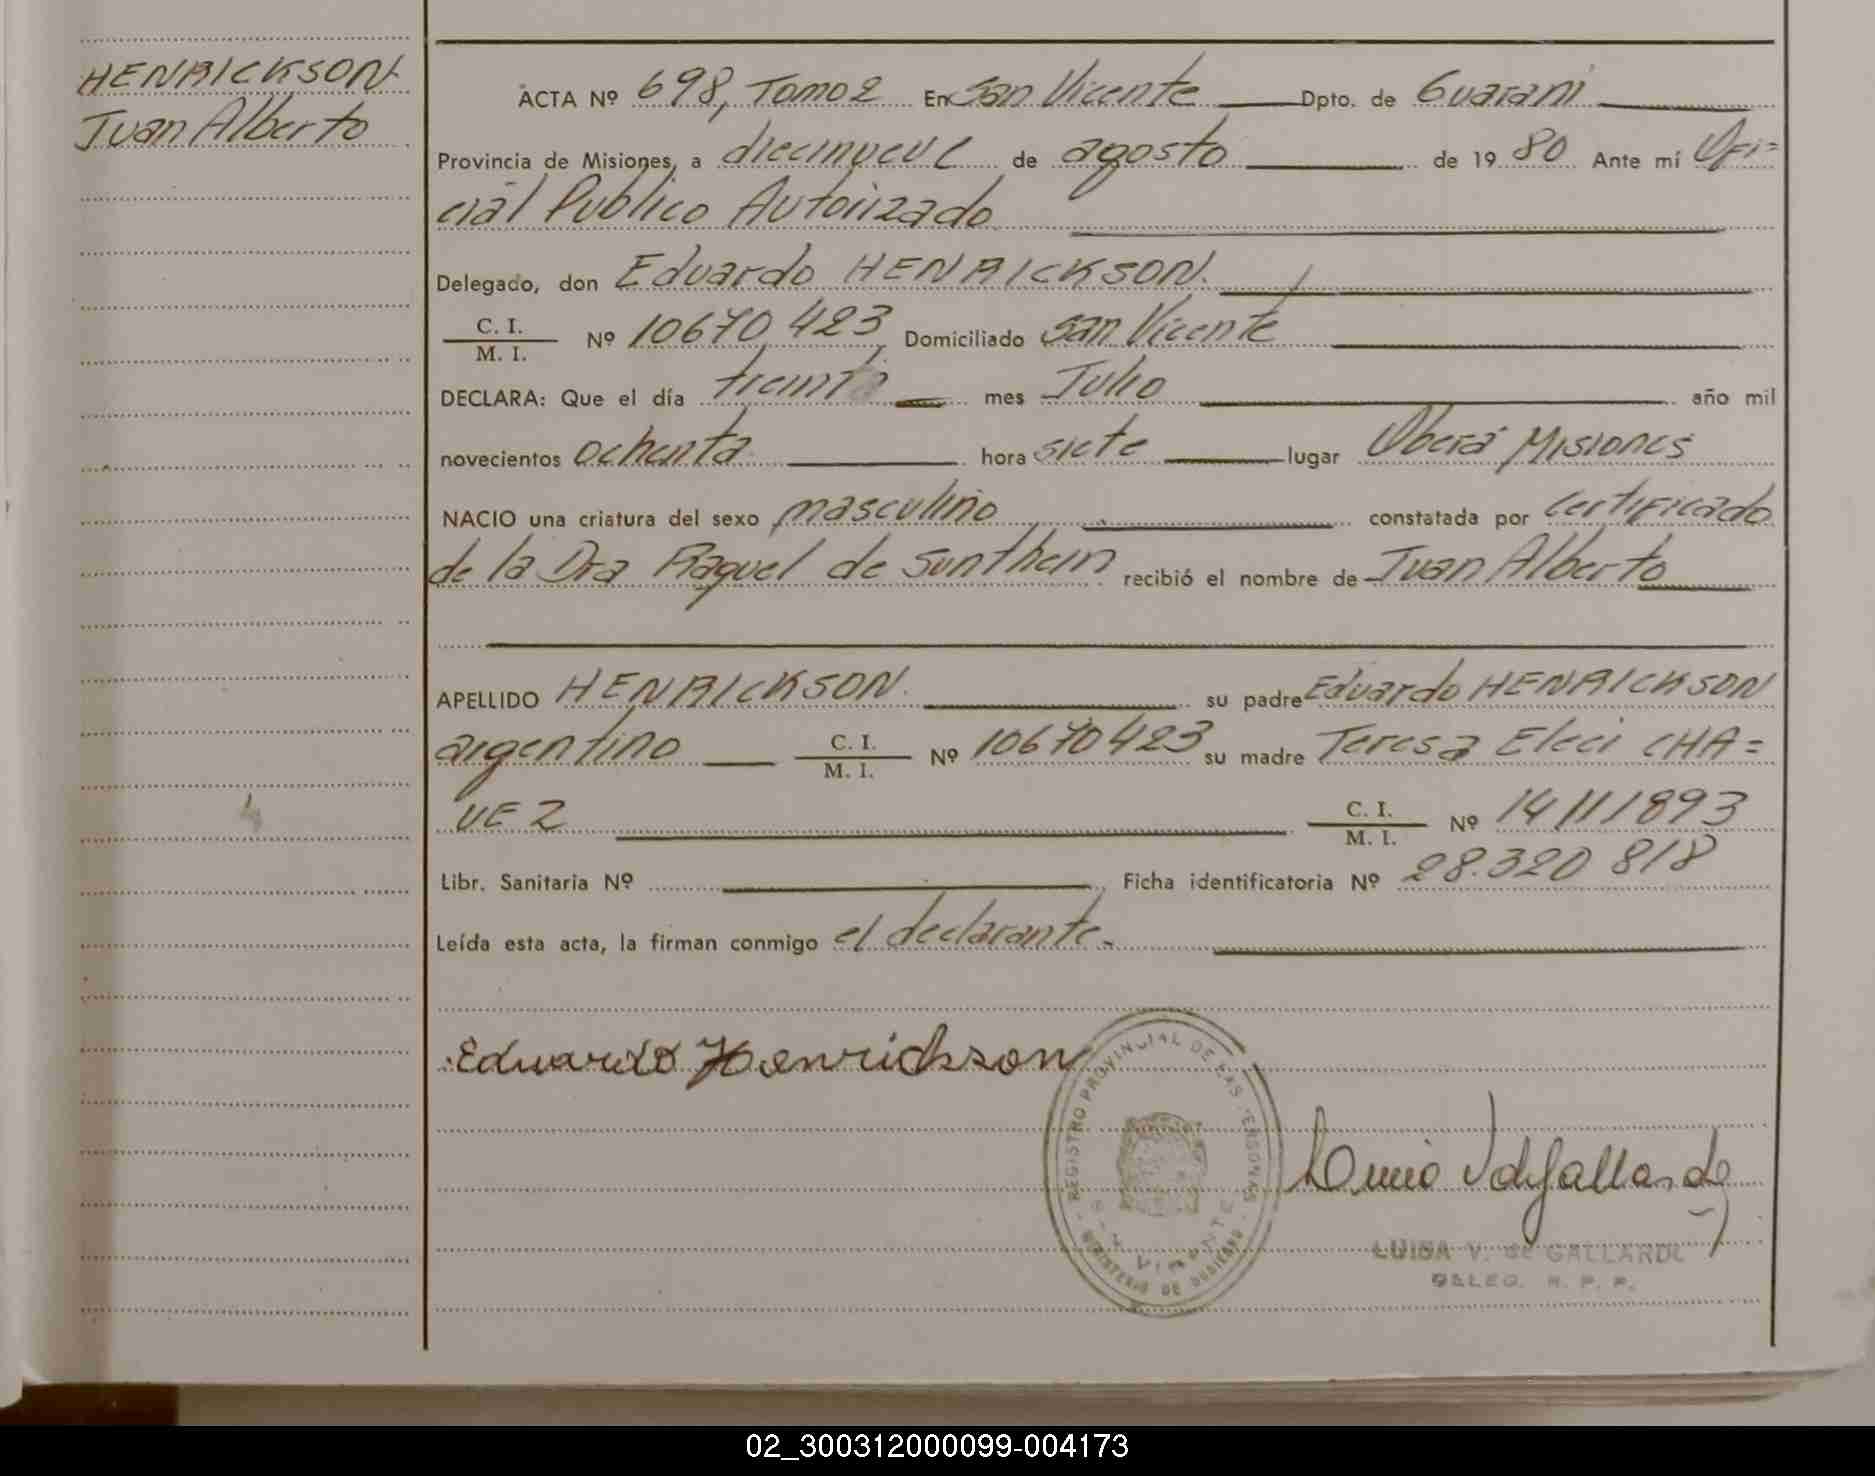 HENRICKSON
Juan Alberto
ACTA Nº 698, Tomo 2 En San Vicente Dpto. de Guaraní
Provincia de Misiones, a diecinueve de agosto de 19 80 Ante mí Ofi=
cial Publico Autorizado
Delegado, don Eduardo HENRICKSON.
C. I. / M. I. Nº 10670423 Domiciliado San Vicente
DECLARA: Que el día treinta mes Julio año mil
novecientos ochenta hora siete lugar Oberá Misiones
NACIO una criatura del sexo masculino constatada por certificado
de la Dra Raquel de Sunthein recibió el nombre de Juan Alberto
APELLIDO HENRICKSON. su padre Eduardo HENRICKSON
argentino C. I. / M. I. Nº 10670423 su madre Teresa Eleci CHA=
VEZ C. I. / M. I. Nº 14111893
Libr. Sanitaria Nº Ficha identificatoria Nº 28.320 818
Leída esta acta, la firman conmigo el declarante.
Eduardo Henrickson
REGISTRO PROVINCIAL DE LAS PERSONAS
MINISTERIO DE GOBIERNO
LUISA V. de GALLARDO
DELEG. R. P. P.
02_300312000099-004173